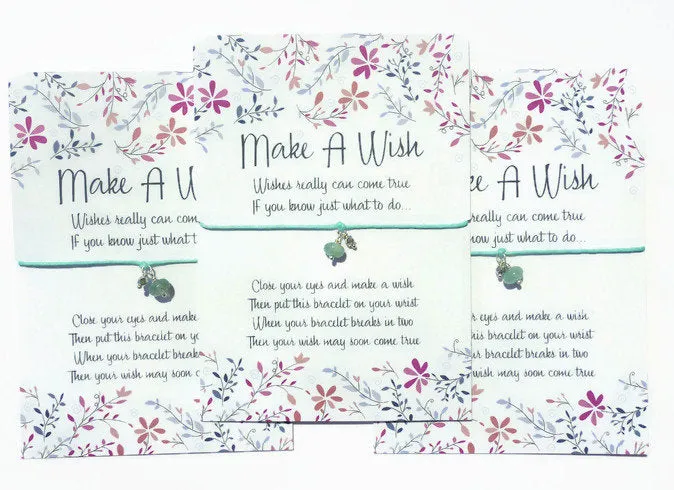 Make A Wish
Wishes really can come true
If you know just what to do...
Close your eyes and make a wish
Then put this bracelet on your wrist
When your bracelet breaks in two
Then your wish may soon come true
Make A W
Wishes really can com
If you know just what t
Close your eyes and make
Then put this bracelet on yo
When your bracelet breaks
Then your wish may soon c
e A Wish
really can come true
w just what to do...
r eyes and make a wish
this bracelet on your wrist
ur bracelet breaks in two
r wish may soon come true